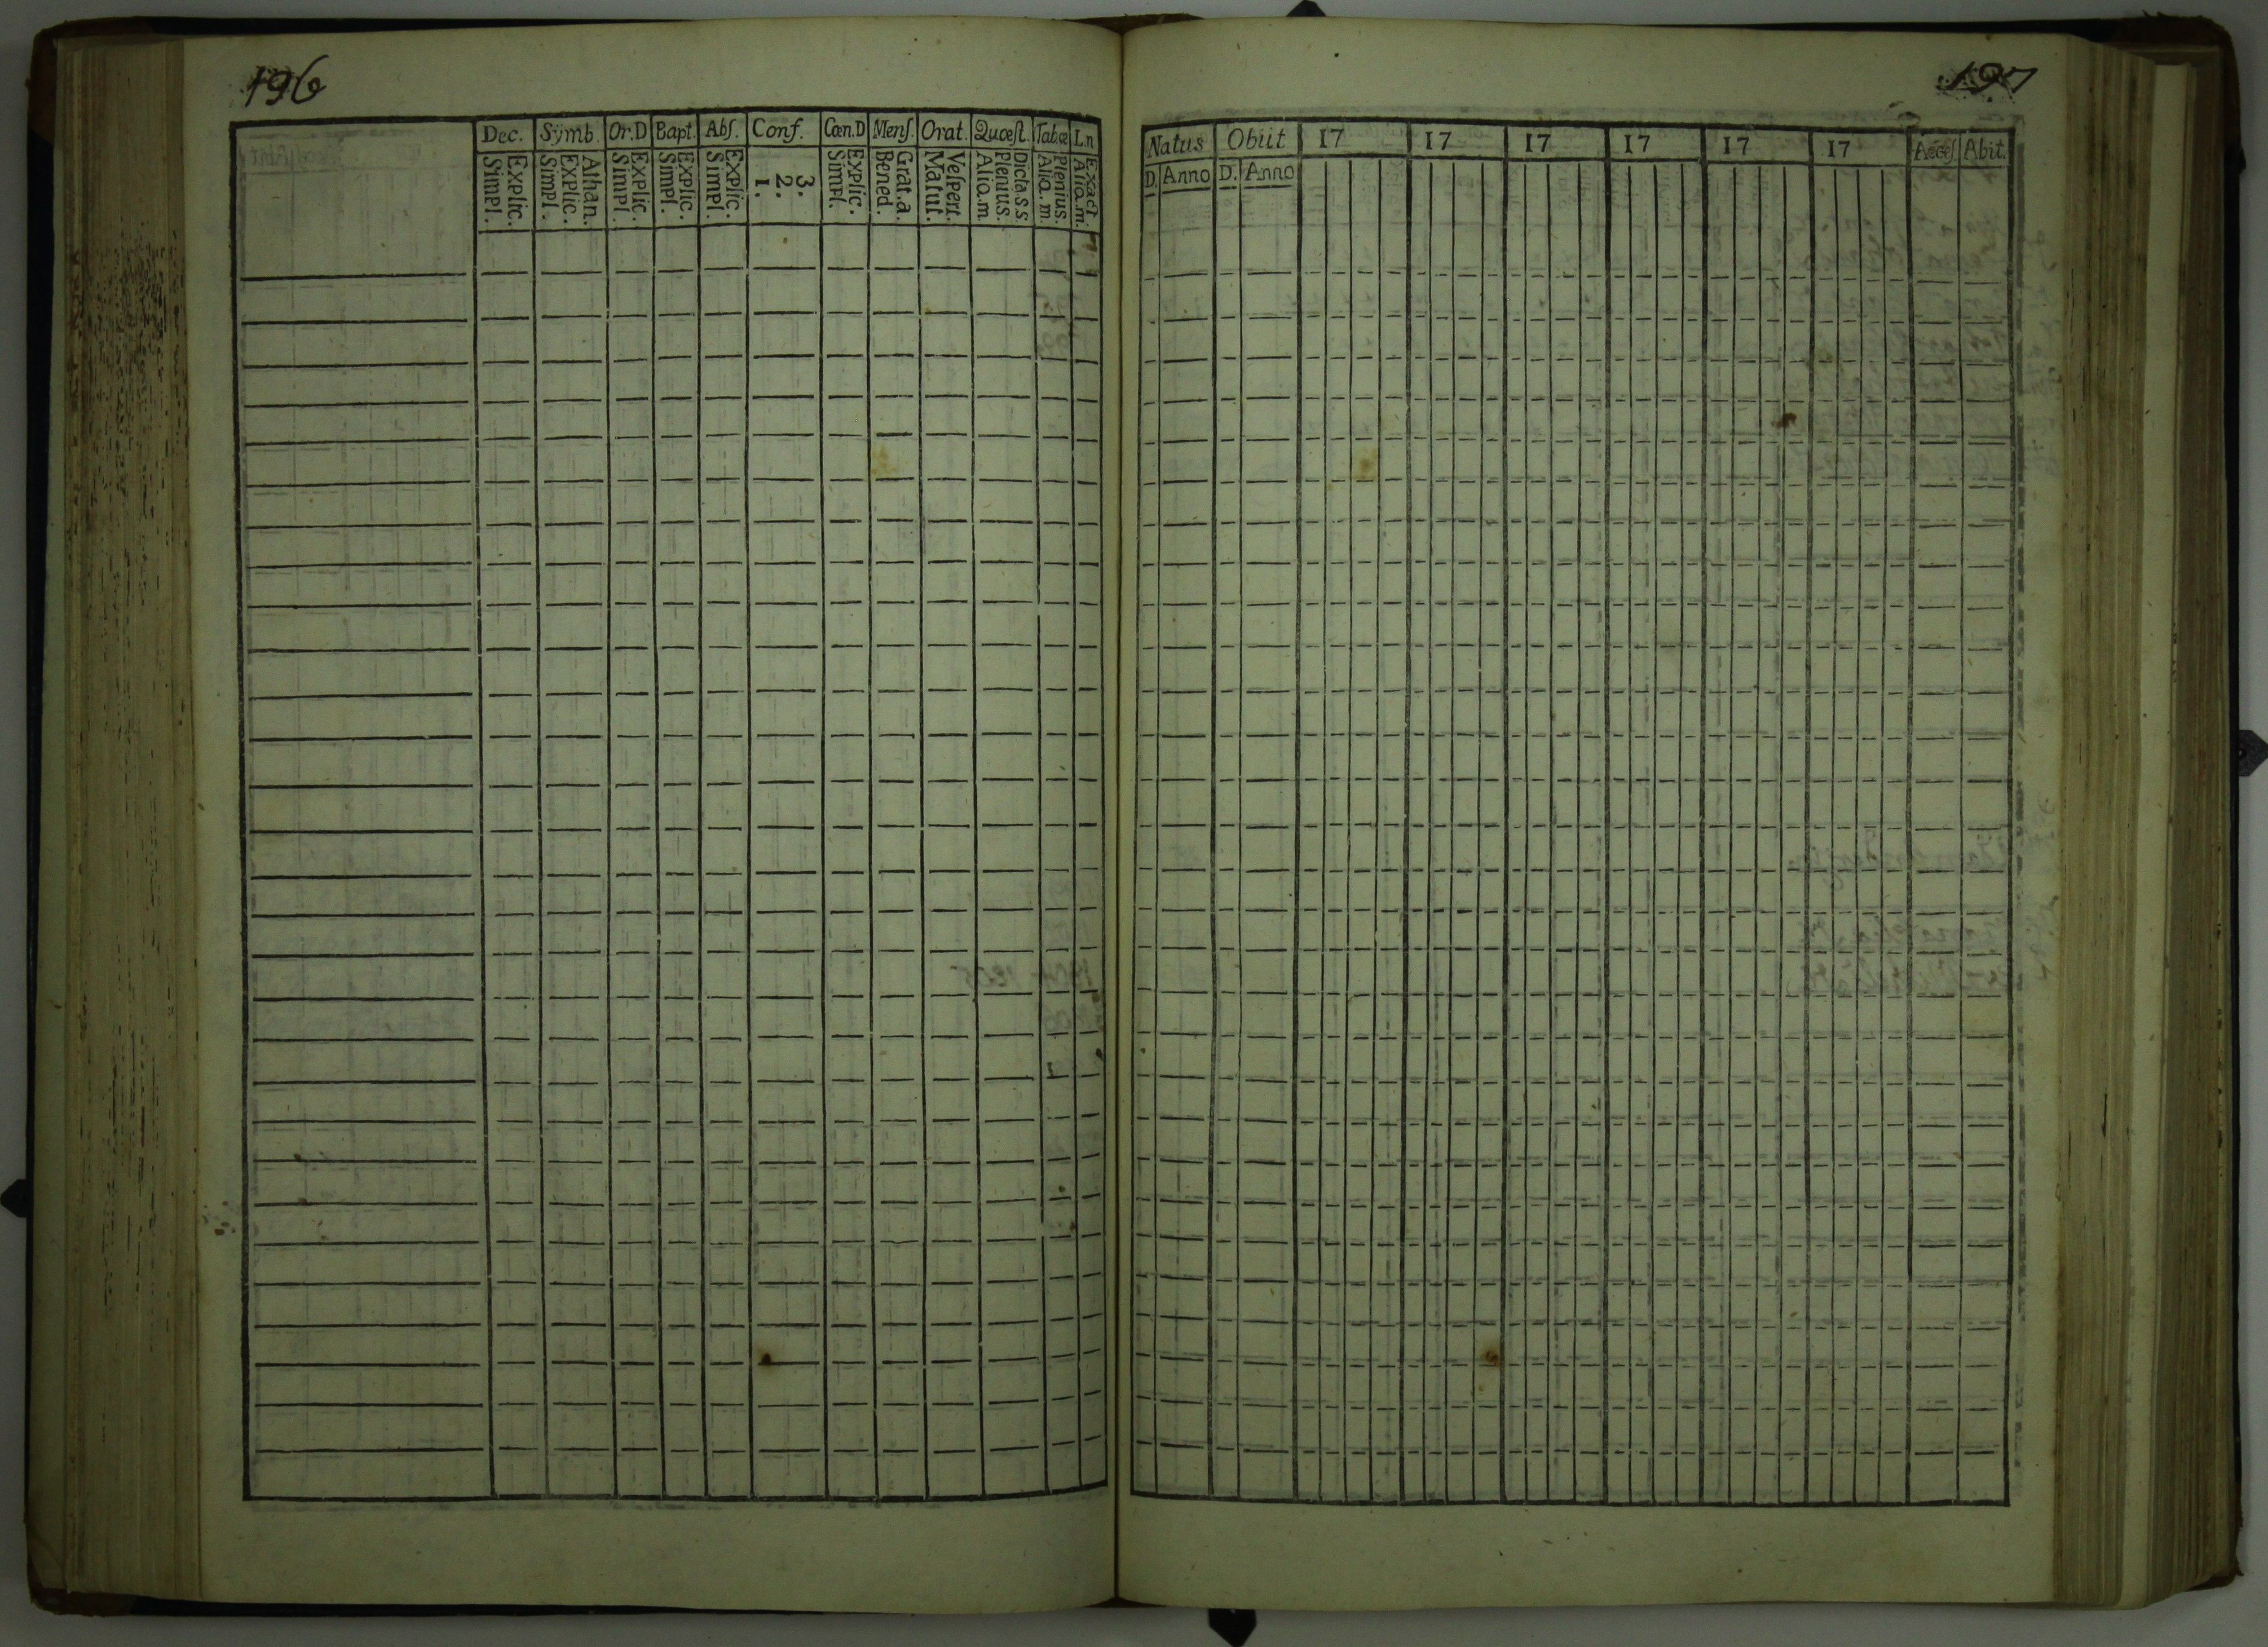 196
Dec. Sÿmb. Or.D Bapt. Abſ. Conf. Cœn.D Menſ. Orat. Quœſt. Tab.œ L.n
Explic. Simpl.
Athan. Explic. Simpl.
Explic. Simpl.
Explic. Simpl.
Explic. Simpl.
3. 2. 1.
Explic. Simpl.
Grat.a. Bened.
Veſpert. Matut.
Dicta.s.s. Plenius. Alio.m
Plenius. Alia.m.
Exact. Alia.m.
197
Natus Obiit 17 17 17 17 17 17 Acceſ Abit.
D. Anno D. Anno